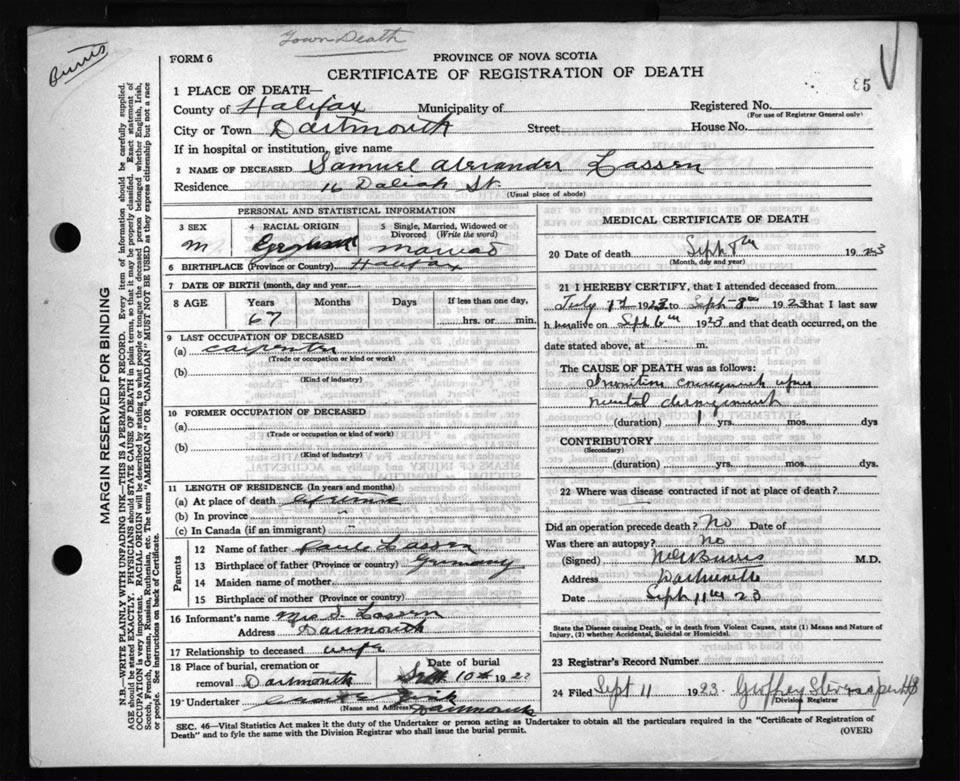 Town Death
Burris
FORM 6
PROVINCE OF NOVA SCOTIA
CERTIFICATE OF REGISTRATION OF DEATH
85
1 PLACE OF DEATH—
County of Halifax Municipality of Registered No.
(For use of Registrar General only)
City or Town Dartmouth Street House No.
If in hospital or institution, give name
2 NAME OF DECEASED Samuel Alexander Lassen
Residence 16 Daliah St.
(Usual place of abode)
PERSONAL AND STATISTICAL INFORMATION
3 SEX 4 RACIAL ORIGIN 5 Single, Married, Widowed or Divorced (Write the word)
M married
6 BIRTHPLACE (Province or Country) Halifax
7 DATE OF BIRTH (month, day and year)
8 AGE Years Months Days If less than one day,
67 hrs. or min.
9 LAST OCCUPATION OF DECEASED
(a) carpenter
(Trade or occupation or kind or work)
(b)
(Kind of industry)
10 FORMER OCCUPATION OF DECEASED
(a)
(Trade or occupation or kind of work)
(b)
(Kind of industry)
11 LENGTH OF RESIDENCE (In years and months)
(a) At place of death lifetime
(b) In province "
(c) In Canada (if an immigrant)
Parents
12 Name of father Paul Lassen
13 Birthplace of father (Province or country) Germany
14 Maiden name of mother
15 Birthplace of mother (Province or country)
16 Informant's name Mrs S. Lassen
Address Dartmouth
17 Relationship to deceased wife
18 Place of burial, cremation or removal Dartmouth Date of burial Sept 10th 1923
19 Undertaker
(Name and Address) Dartmouth
MEDICAL CERTIFICATE OF DEATH
20 Date of death Sept 8th 1923
(Month, day and year)
21 I HEREBY CERTIFY, that I attended deceased from
July 1st 1923 to Sept 8th 1923 that I last saw
h alive on Sept 6th 1923 and that death occurred, on the
date stated above, at m.
The CAUSE OF DEATH was as follows:
Inanition consequent upon
mental derangement
(duration) 1 yrs. mos. dys
CONTRIBUTORY
(Secondary)
(duration) yrs. mos. dys.
22 Where was disease contracted if not at place of death?
Did an operation precede death? No Date of
Was there an autopsy? No
(Signed) Burris M.D.
Address Dartmouth
Date Sept 11th 23
State the Disease causing Death, or in death from Violent Causes, state (1) Means and Nature of Injury, (2) whether Accidental, Suicidal or Homicidal.
23 Registrar's Record Number
24 Filed Sept 11 1923 Geoffrey
Division Registrar
SEC. 46—Vital Statistics Act makes it the duty of the Undertaker or person acting as Undertaker to obtain all the particulars required in the "Certificate of Registration of
Death" and to fyle the same with the Division Registrar who shall issue the burial permit. (OVER)
MARGIN RESERVED FOR BINDING
N.B.—WRITE PLAINLY WITH UNFADING INK—THIS IS A PERMANENT RECORD. Every item of information should be carefully supplied.
AGE should be stated EXACTLY. PHYSICIANS should STATE CAUSE OF DEATH in plain terms, so that it may be properly classified. Exact statement of
OCCUPATION is very important. RACIAL ORIGIN will be described by stating to what people or tongue the deceased person belonged whether English, Irish,
Scotch, French, German, Russian, Ruthenian, etc. The terms "AMERICAN" or "CANADIAN" MUST NOT BE USED as they express citizenship but not a race
or people. See instructions on back of Certificate.